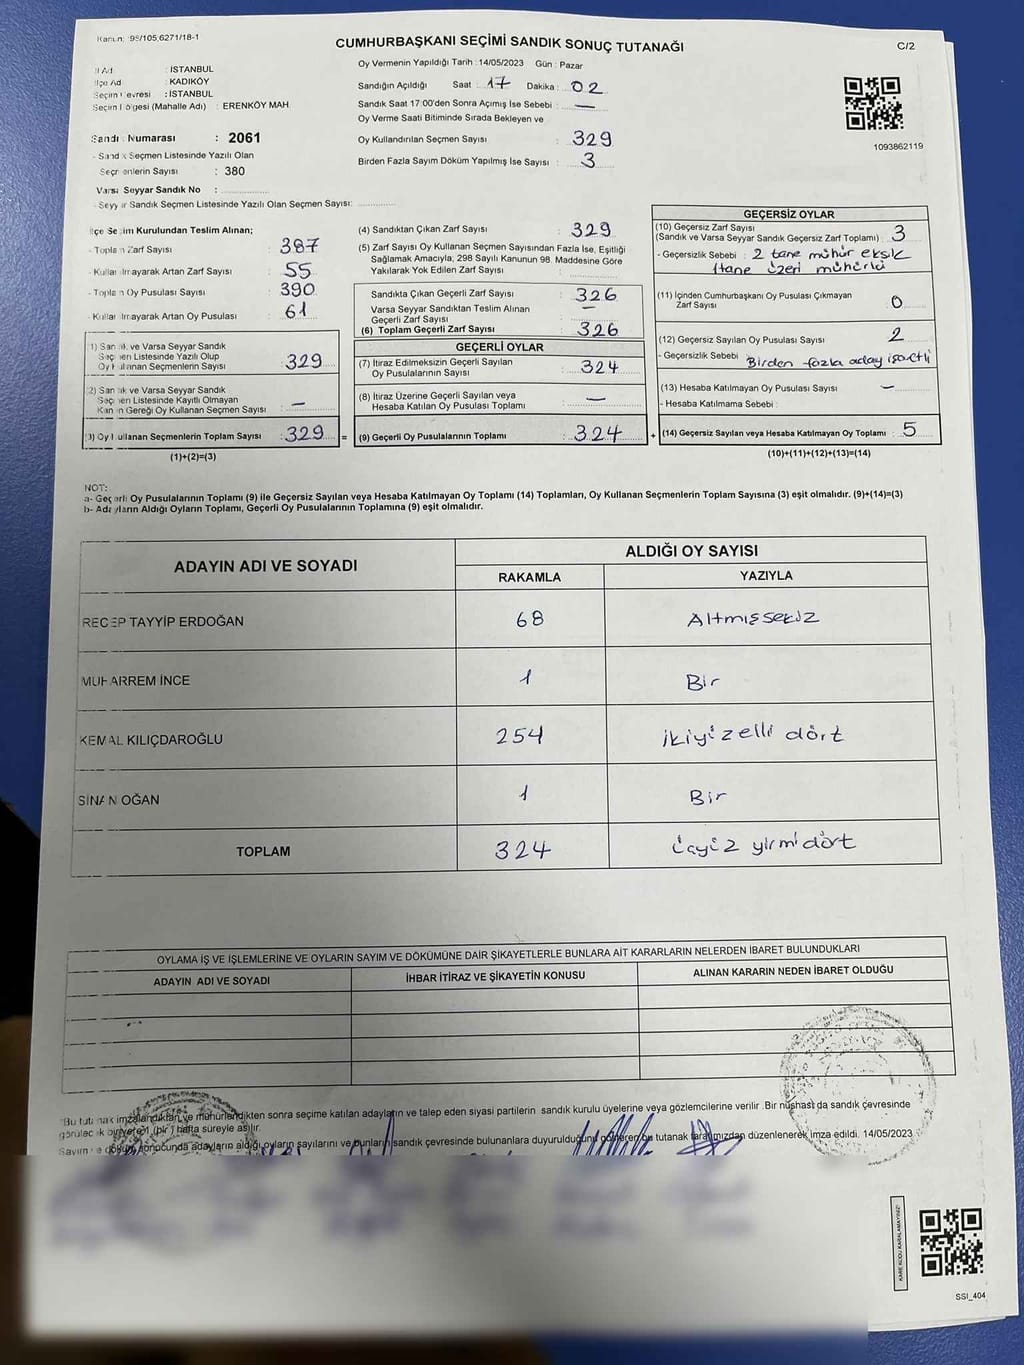 Kanun: 98/105,6271/18-1
CUMHURBAŞKANI SEÇİMİ SANDIK SONUÇ TUTANAĞI
C/2
İl Adı : İSTANBUL
İlçe Adı : KADIKÖY
Seçim Çevresi : İSTANBUL
Seçim Bölgesi (Mahalle Adı) : ERENKÖY MAH.
Sandık Numarası : 2061
- Sandık Seçmen Listesinde Yazılı Olan
Seçmenlerin Sayısı : 380
Varsa Seyyar Sandık No :
- Seyyar Sandık Seçmen Listesinde Yazılı Olan Seçmen Sayısı:
Oy Vermenin Yapıldığı Tarih : 14/05/2023 Gün : Pazar
Sandığın Açıldığı Saat : 17 Dakika : 02
Sandık Saat 17:00'den Sonra Açımış İse Sebebi : —
Oy Verme Saati Bitiminde Sırada Bekleyen ve
Oy Kullandırılan Seçmen Sayısı : 329
Birden Fazla Sayım Döküm Yapılmış İse Sayısı : 3
1093862119
İlçe Seçim Kurulundan Teslim Alınan;
- Toplam Zarf Sayısı : 387
- Kullanılmayarak Artan Zarf Sayısı : 55
- Toplam Oy Pusulası Sayısı : 390
- Kullanılmayarak Artan Oy Pusulası : 61
(1) Sandık ve Varsa Seyyar Sandık
Seçmen Listesinde Yazılı Olup
Oy Kullanan Seçmenlerin Sayısı : 329
(2) Sandık ve Varsa Seyyar Sandık
Seçmen Listesinde Kayıtlı Olmayan
Kanun Gereği Oy Kullanan Seçmen Sayısı : —
(3) Oy Kullanan Seçmenlerin Toplam Sayısı : 329 =
(1)+(2)=(3)
(4) Sandıktan Çıkan Zarf Sayısı : 329
(5) Zarf Sayısı Oy Kullanan Seçmen Sayısından Fazla İse, Eşitliği
Sağlamak Amacıyla, 298 Sayılı Kanunun 98. Maddesine Göre
Yakılarak Yok Edilen Zarf Sayısı :
Sandıkta Çıkan Geçerli Zarf Sayısı : 326
Varsa Seyyar Sandıktan Teslim Alınan
Geçerli Zarf Sayısı : —
(6) Toplam Geçerli Zarf Sayısı : 326
GEÇERLİ OYLAR
(7) İtiraz Edilmeksizin Geçerli Sayılan
Oy Pusulalarının Sayısı : 324
(8) İtiraz Üzerine Geçerli Sayılan veya
Hesaba Katılan Oy Pusulası Toplamı : —
(9) Geçerli Oy Pusulalarının Toplamı : 324 +
GEÇERSİZ OYLAR
(10) Geçersiz Zarf Sayısı
(Sandık ve Varsa Seyyar Sandık Geçersiz Zarf Toplamı) : 3
- Geçersizlik Sebebi : 2 tane mühür eksik
1 tane üzeri mühürlü
(11) İçinden Cumhurbaşkanı Oy Pusulası Çıkmayan
Zarf Sayısı : 0
(12) Geçersiz Sayılan Oy Pusulası Sayısı : 2
- Geçersizlik Sebebi : Birden fazla aday işaretli
(13) Hesaba Katılmayan Oy Pusulası Sayısı : —
- Hesaba Katılmama Sebebi :
(14) Geçersiz Sayılan veya Hesaba Katılmayan Oy Toplamı : 5
(10)+(11)+(12)+(13)=(14)
NOT:
a- Geçerli Oy Pusulalarının Toplamı (9) ile Geçersiz Sayılan veya Hesaba Katılmayan Oy Toplamı (14) Toplamları, Oy Kullanan Seçmenlerin Toplam Sayısına (3) eşit olmalıdır. (9)+(14)=(3)
b- Adayların Aldığı Oyların Toplamı, Geçerli Oy Pusulalarının Toplamına (9) eşit olmalıdır.
ADAYIN ADI VE SOYADI
ALDIĞI OY SAYISI
RAKAMLA YAZIYLA
RECEP TAYYİP ERDOĞAN 68 Altmışsekiz
MUHARREM İNCE 1 Bir
KEMAL KILIÇDAROĞLU 254 ikiyüzelli dört
SİNAN OĞAN 1 Bir
TOPLAM 324 üçyüz yirmidört
OYLAMA İŞ VE İŞLEMLERİNE VE OYLARIN SAYIM VE DÖKÜMÜNE DAİR ŞİKAYETLERLE BUNLARA AİT KARARLARIN NELERDEN İBARET BULUNDUKLARI
ADAYIN ADI VE SOYADI İHBAR İTİRAZ VE ŞİKAYETİN KONUSU ALINAN KARARIN NEDEN İBARET OLDUĞU
Bu tutanak imzalandıktan ve mühürlendikten sonra seçime katılan adayların ve talep eden siyasi partilerin sandık kurulu üyelerine veya gözlemcilerine verilir .Bir nüshası da sandık çevresinde
görülecek bir yere 1 (bir ) hafta süreyle asılır.
Sayım ve döküm sonucunda adayların aldığı oyların sayılarını ve bunların sandık çevresinde bulunanlara duyurulduğunu gösteren bu tutanak tarafımızdan düzenlenerek imza edildi. 14/05/2023
KARE KODU KARALAMAYINIZ!
SSI_404